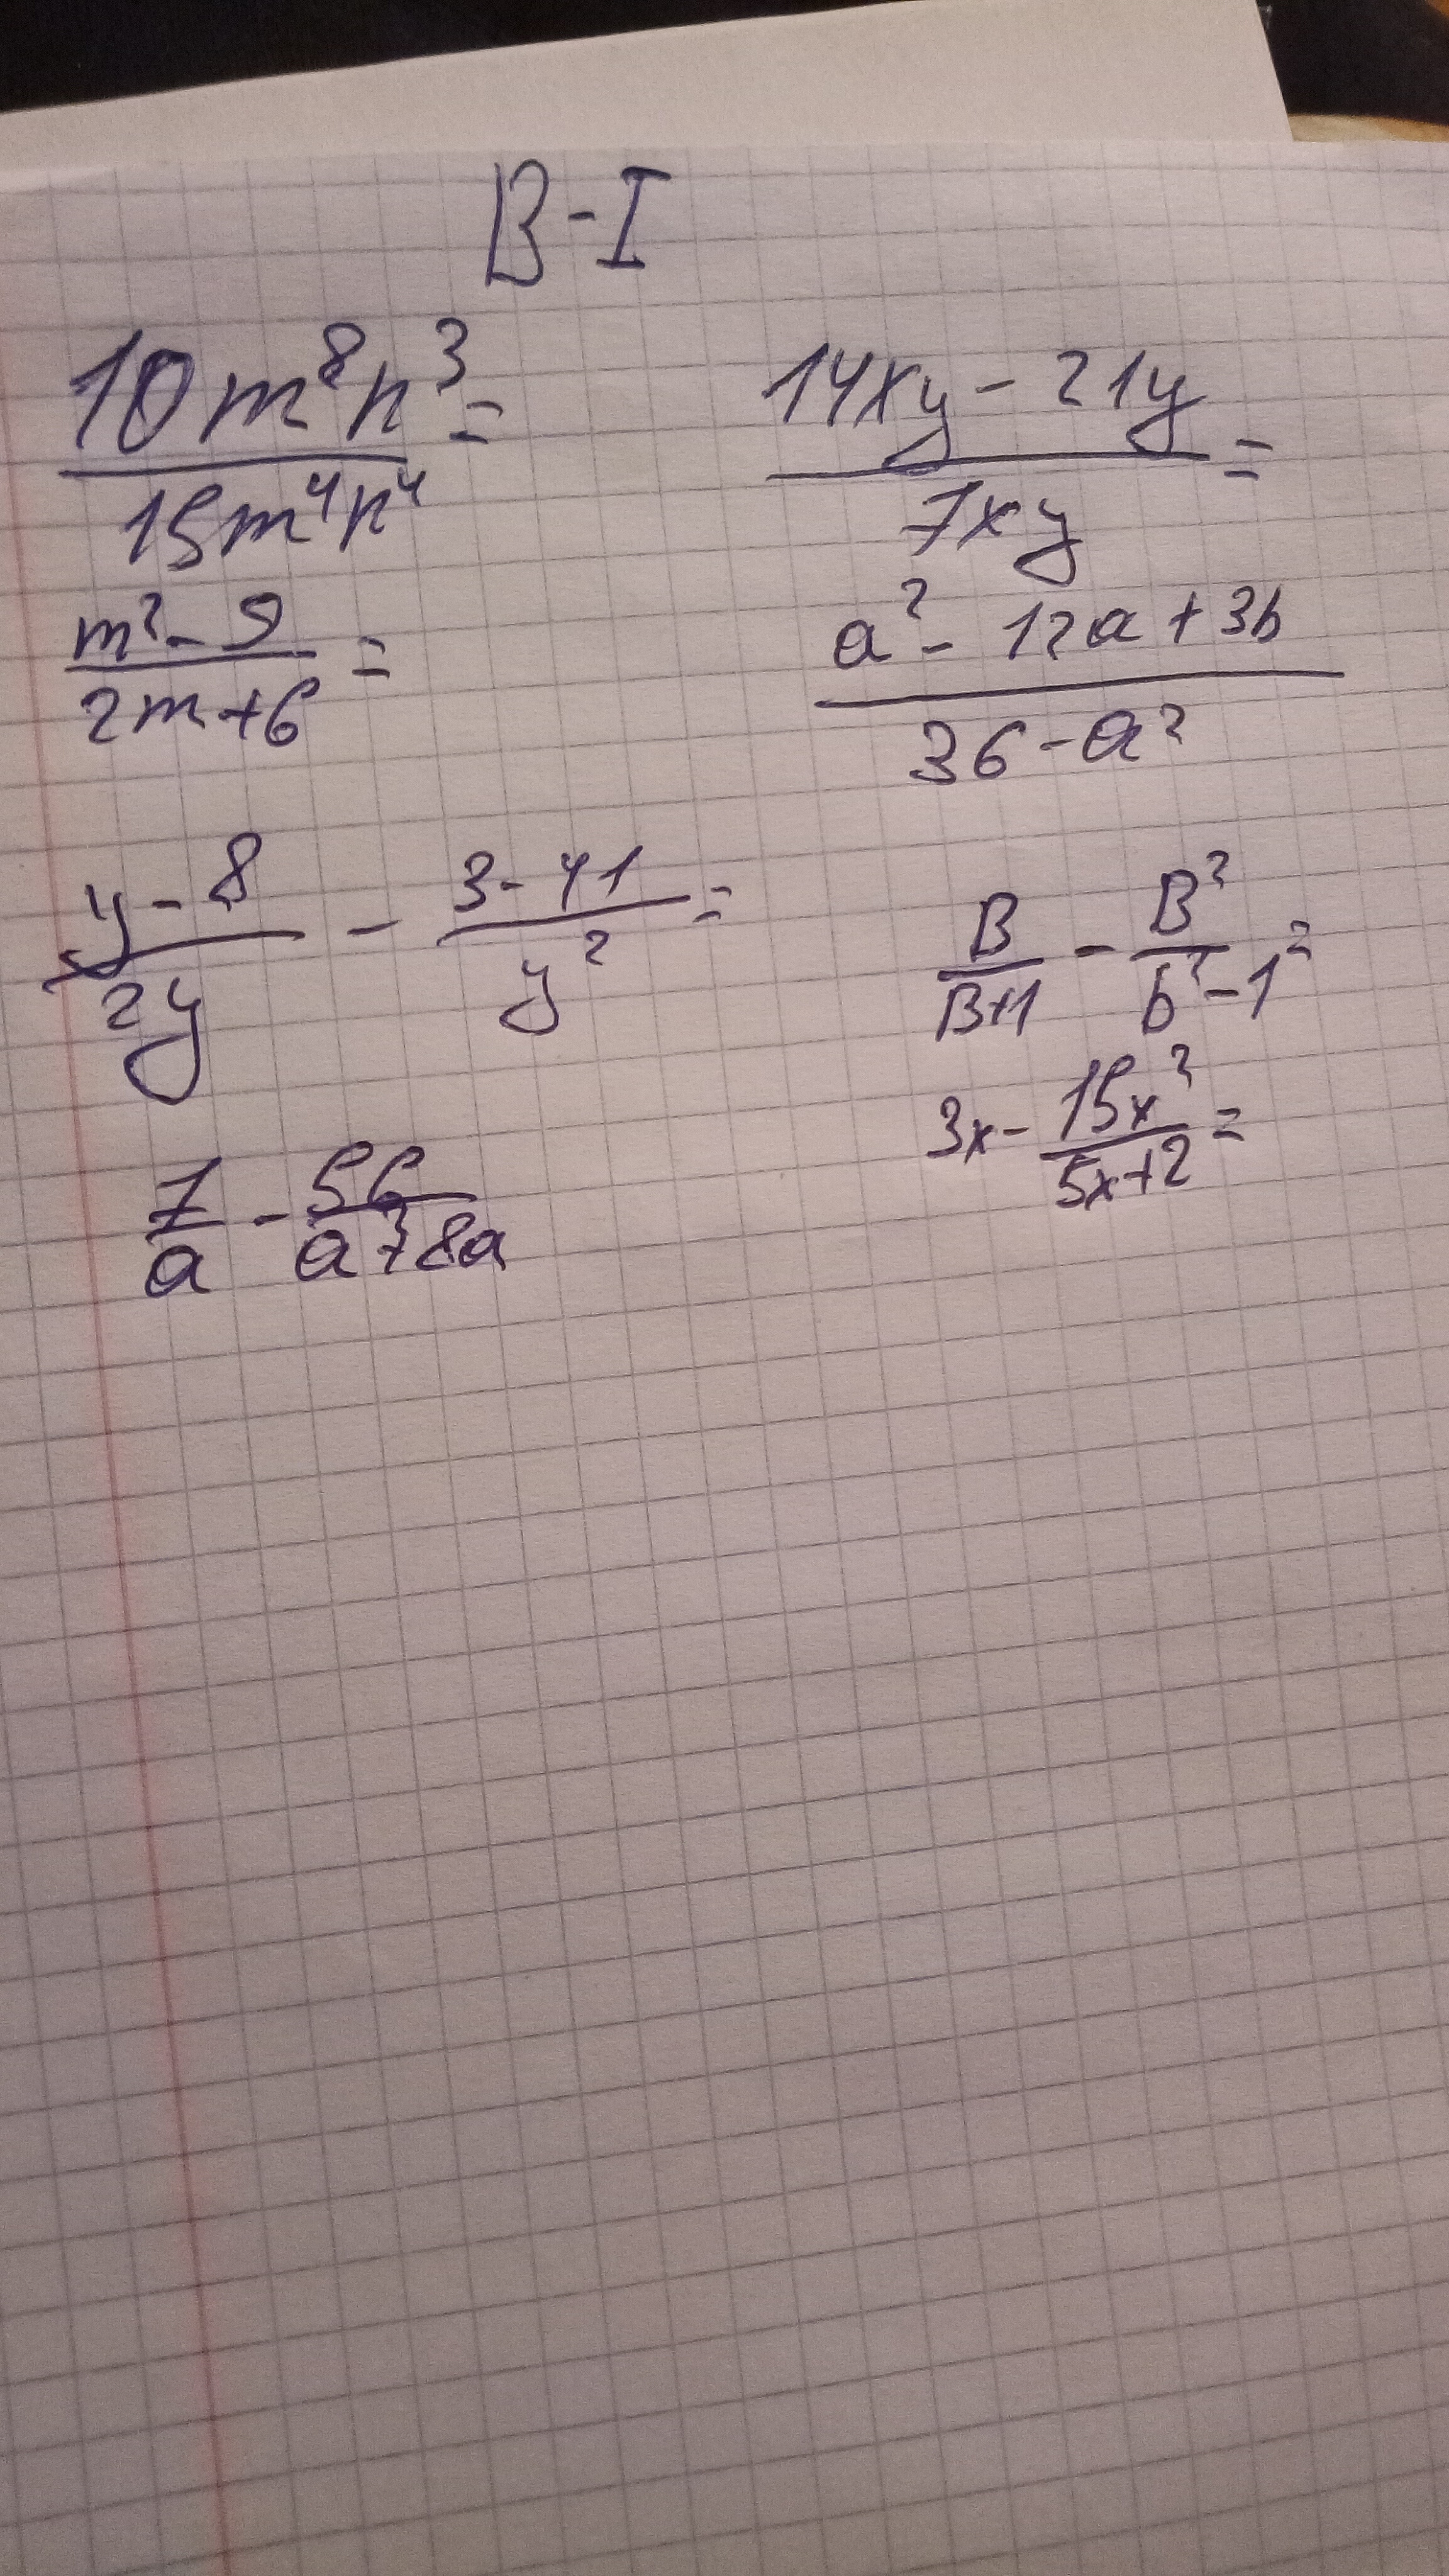 В-I
10m⁸n³/15m⁴n⁴ =
14xy - 21y/7xy =
m² - 9/2m+6 =
a² - 12a + 36/36 - a²
y - 8/2y - 3 - 41/y² =
B/B+1 - B²/b² - 1 =
3x - 15x²/5x+2 =
7/a - 56/a²+8a